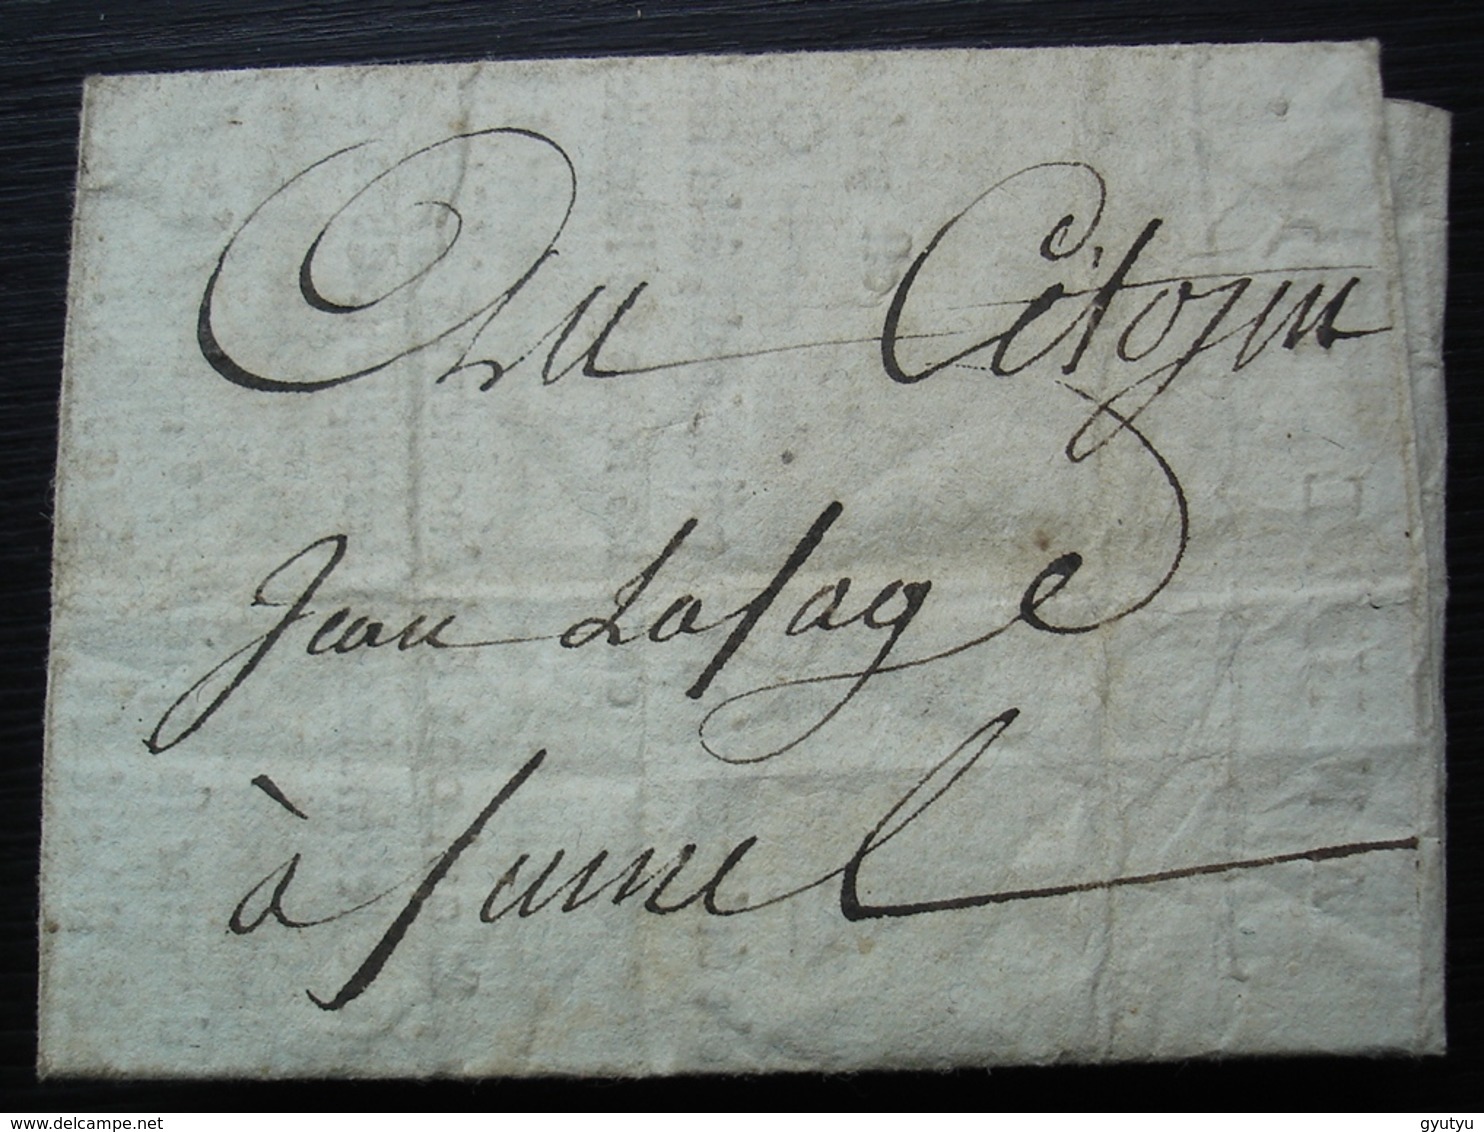 Au Citoyen
Jean Lafage
à fumel
delcampe.net
gyutyu